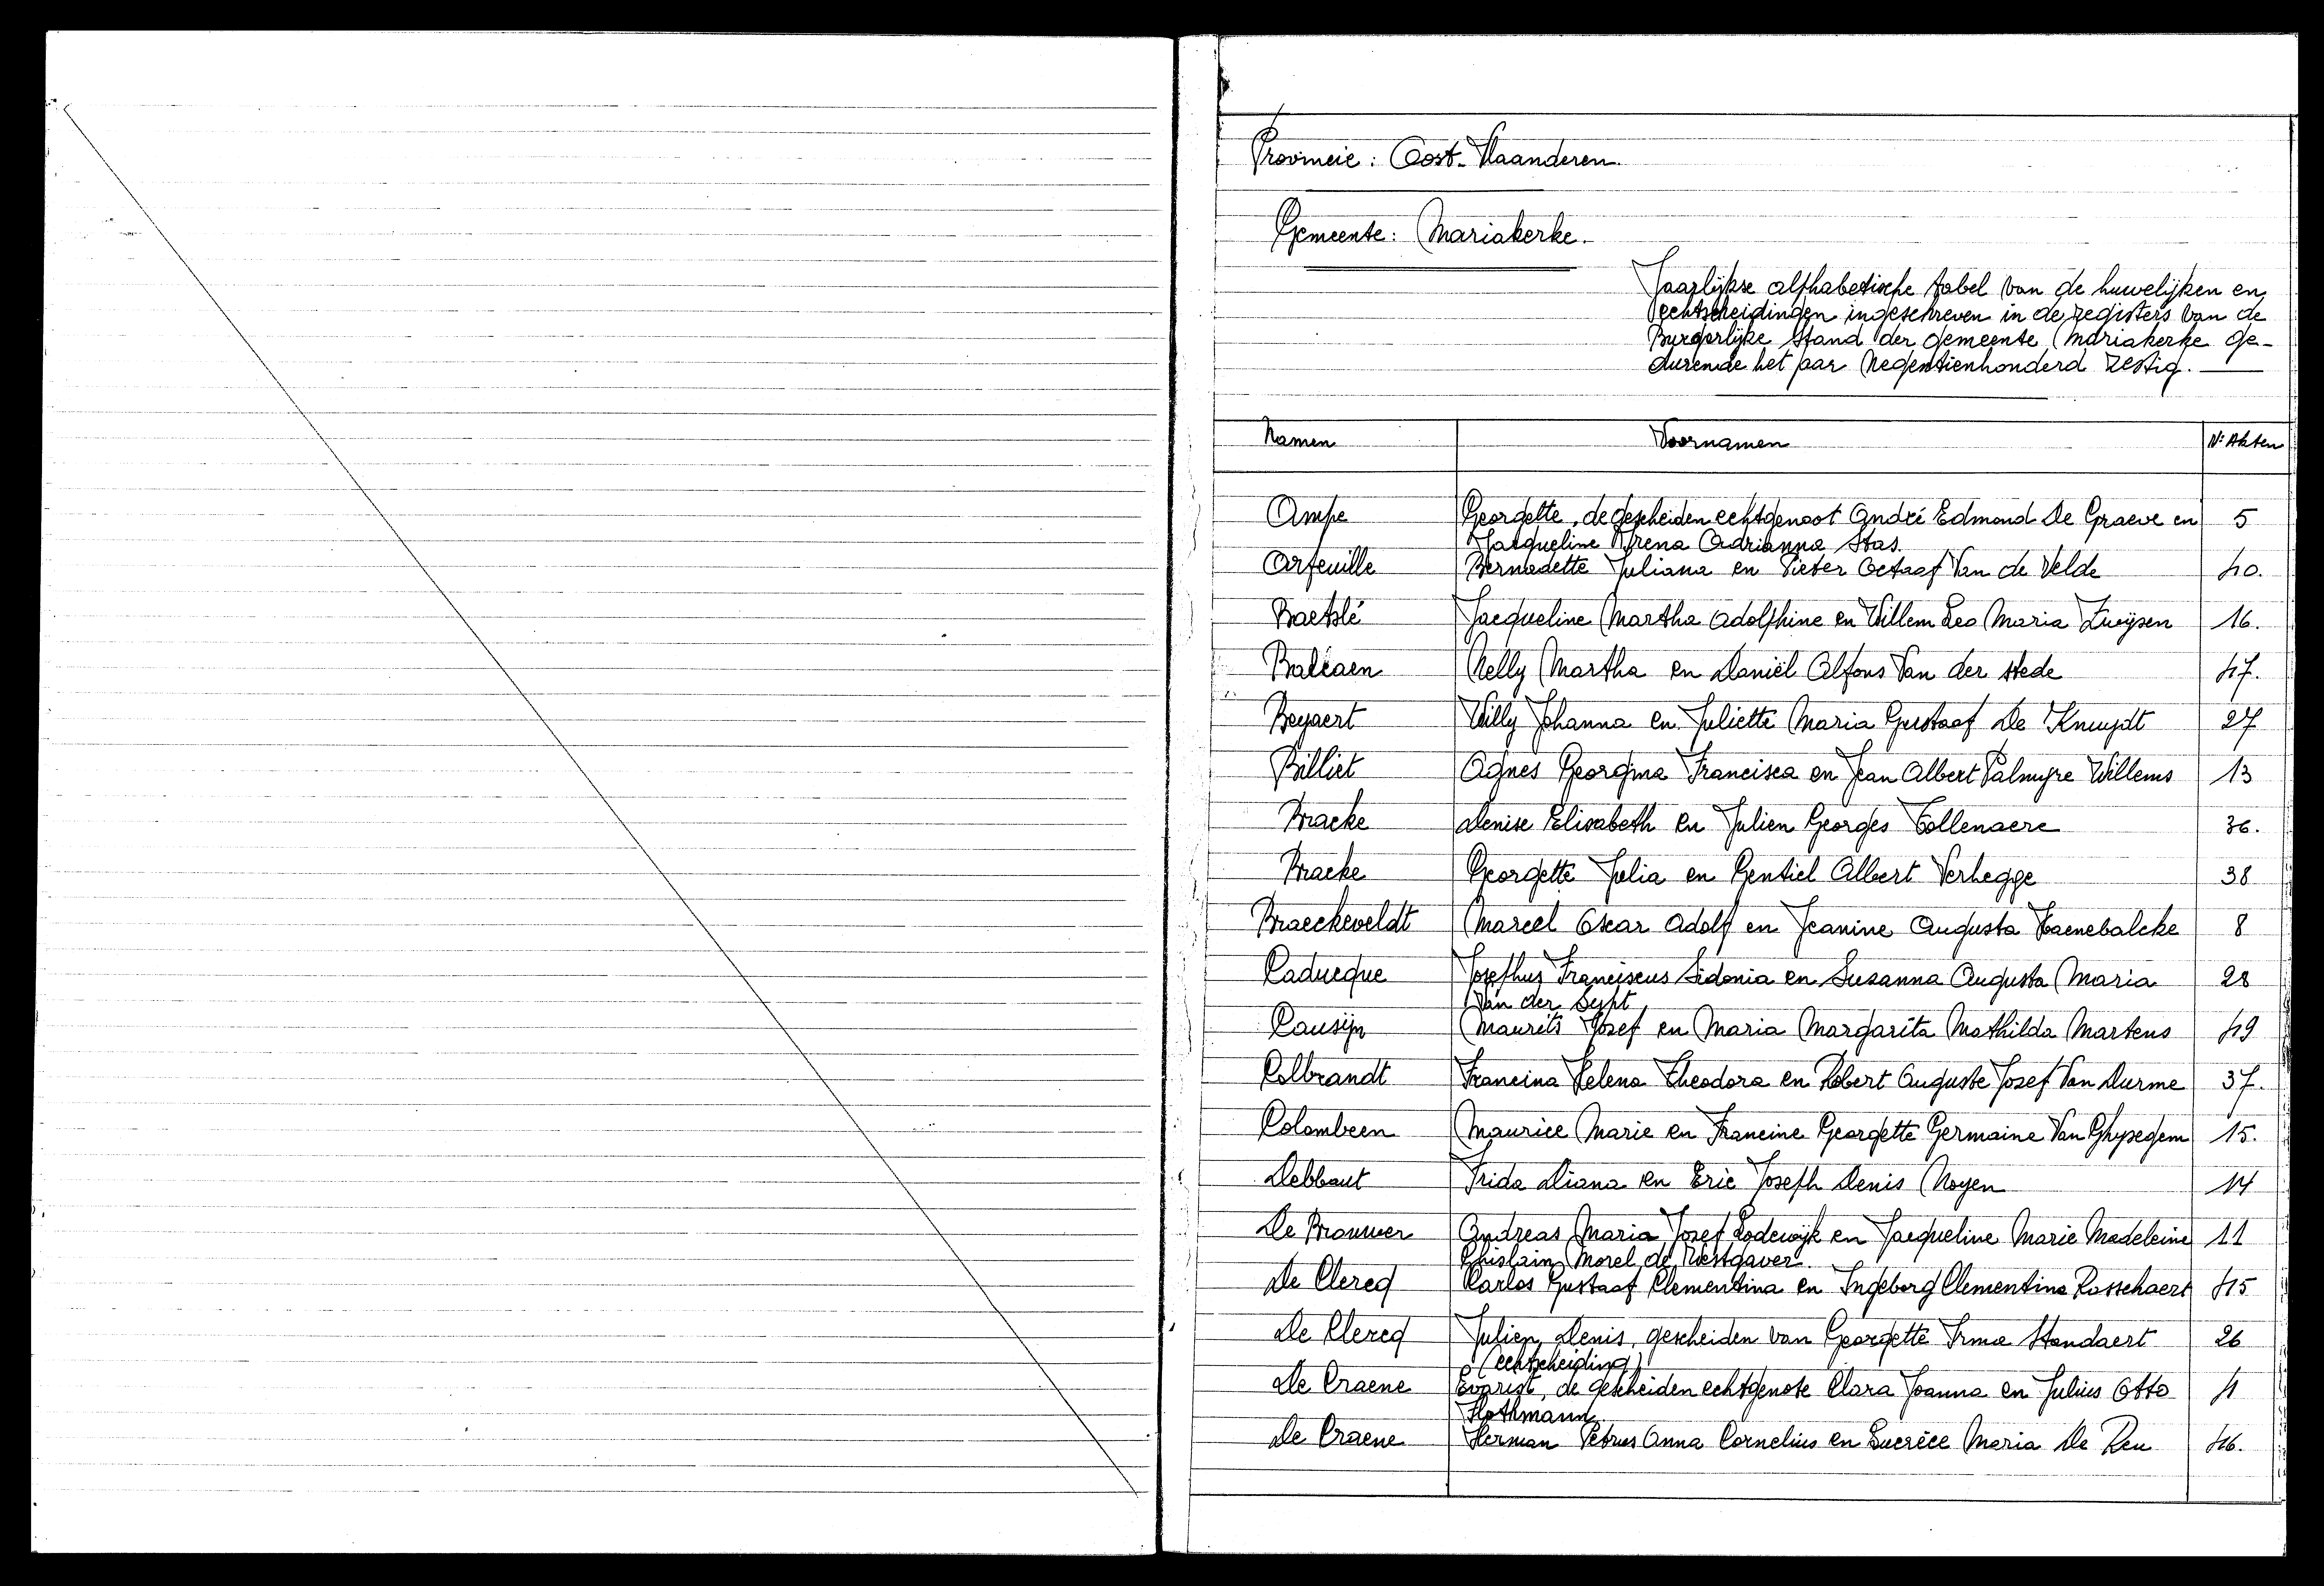 Provincie: Oost-Vlaanderen.
Gemeente: Mariakerke.
Jaarlijkse alphabetische tabel van de huwelijken en
echtscheidingen ingeschreven in de registers van de
Burgerlijke Stand der gemeente Mariakerke ge-
durende het jaar Negentienhonderd zestig.
Namen Voornamen Nr Akten
Ampe Georgette, de gescheiden echtgenoot André Edmond De Graeve en 5
Jacqueline Irena Adrianna Stas.
Arfeuille Bernadette Juliana en Pieter Octaaf Van de Velde 40.
Baetslé Jacqueline Martha Adolphine en Willem Leo Maria Zwijsen 16.
Baleaen Nelly Martha en Daniël Alfons Van der Stede 47.
Beyaert Willy Johanna en Juliette Maria Gustaaf De Knuydt 27
Billiet Agnes Georgina Francisca en Jean Albert Palmyre Willems 13
Bracke Denise Elisabeth en Julien Georges Tollenaere 36.
Bracke Georgette Julia en Gentiel Albert Verhegge 38
Braeckeveldt Marcel Oscar Adolf en Jeanine Augusta Haenebalcke 8
Caducque Josephus Franciscus Sidonia en Suzanna Augusta Maria 28
Van der Sypt
Causijn Maurits Jozef en Maria Margarita Mathilda Martens 49
Colbrandt Francina Helena Theodora en Robert Auguste Jozef Van Durme 37.
Colombeen Maurice Marie en Francine Georgette Germaine Van Ghysegem 15.
Debbaut Frida Diana en Eric Joseph Denis Noyen 14
De Brouwer Andreas Maria Jozef Lodewijk en Jacqueline Marie Madeleine 11
Ghislain Morel de Westgaver.
De Clercq Carlos Gustaaf Clementina en Ingeborg Clementine Rosschaert 45
De Clercq Julien Denis, gescheiden van Georgette Irma Standaert 26
(echtscheiding)
De Craene Evarist, de gescheiden echtgenote Clara Joanna en Julius Otto 4
Hothmann
De Craene Herman Petrus Anna Cornelius en Lucrèce Maria De Reu 46.